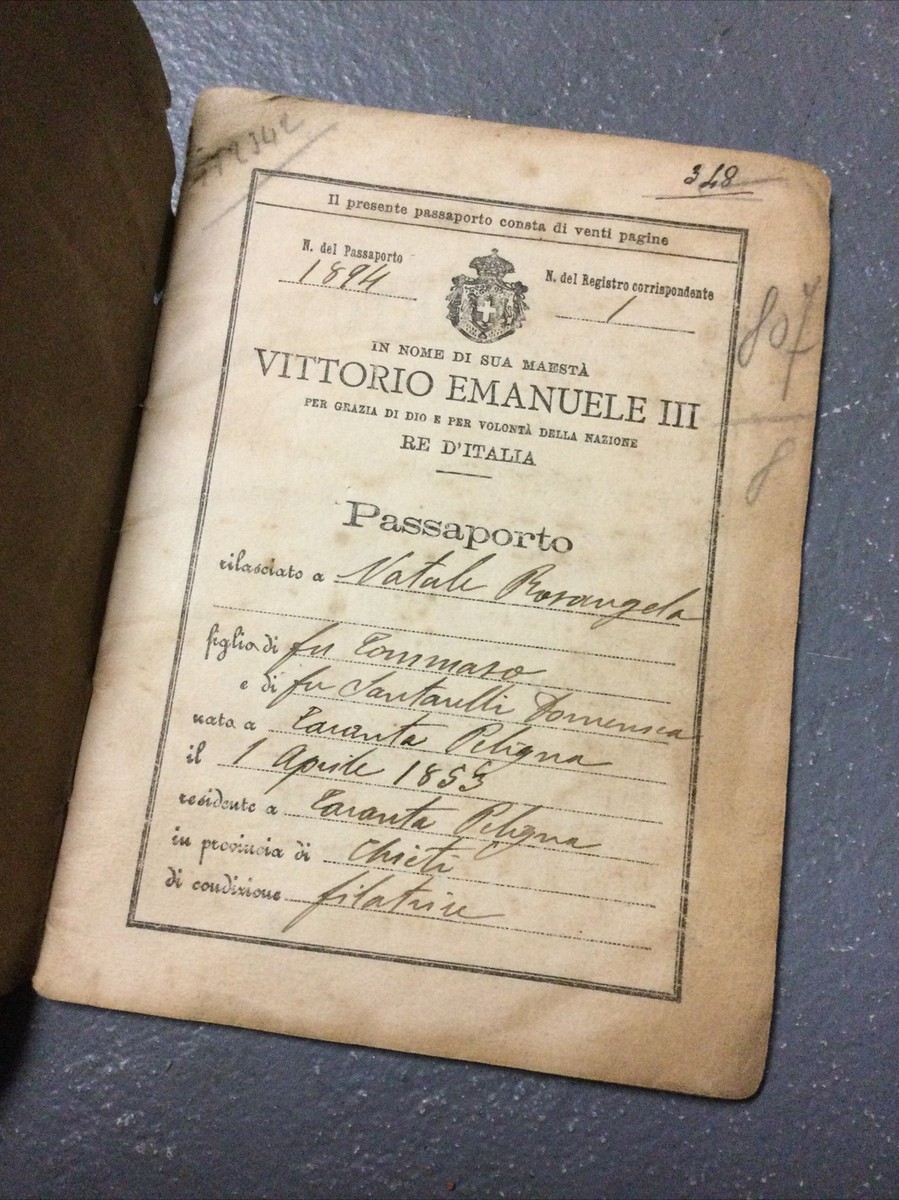 348
Il presente passaporto consta di venti pagine
N. del Passaporto
1894
N. del Registro corrispondente
1
807
8
IN NOME DI SUA MAESTÀ
VITTORIO EMANUELE III
PER GRAZIA DI DIO E PER VOLONTÀ DELLA NAZIONE
RE D'ITALIA
Passaporto
rilasciato a Natale Rosangela
figlia di fu Tommaso
e di fu Santarelli Domenica
nata a Taranta Peligna
il 1 Aprile 1853
residente a Taranta Peligna
in provincia di Chieti
di condizione filatrice